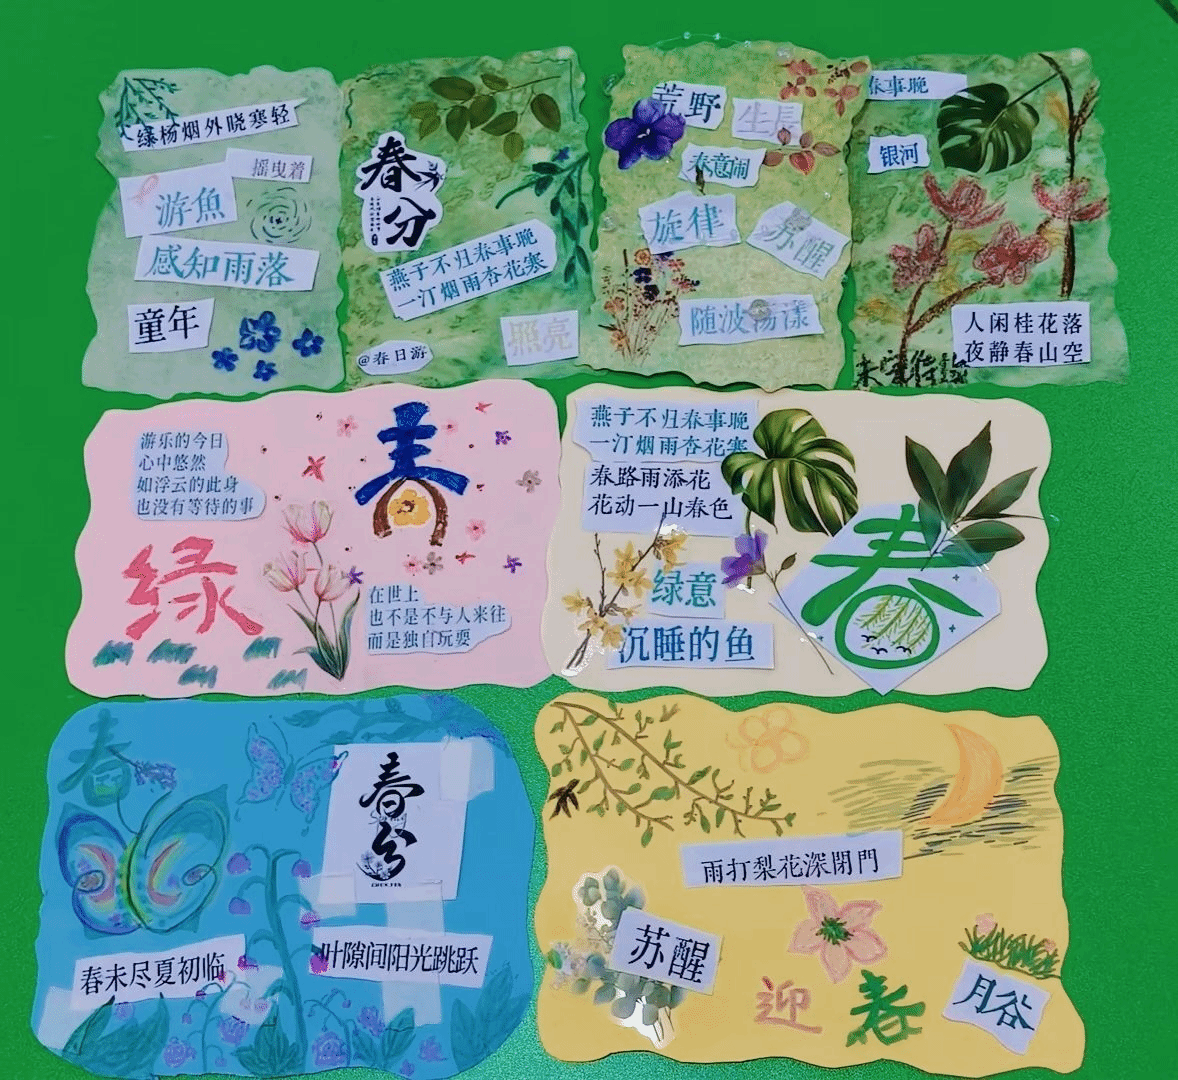 绿杨烟外晓寒轻
摇曳着
游魚
感知雨落
童年
春分
燕子不归春事晚
一汀烟雨杏花寒
照亮
@春日游
荒野
生長
春意闹
旋律
苏醒
随波荡漾
春事晚
银河
人闲桂花落
夜静春山空
游乐的今日
心中悠然
如浮云的此身
也没有等待的事
春
绿
在世上
也不是不与人来往
而是独自玩耍
燕子不归春事晚
一汀烟雨杏花寒
春路雨添花
花动一山春色
绿意
沉睡的鱼
春
春
春分
CHUN FEN
春未尽夏初临
叶隙间阳光跳跃
雨打梨花深閉門
苏醒
迎春
月谷